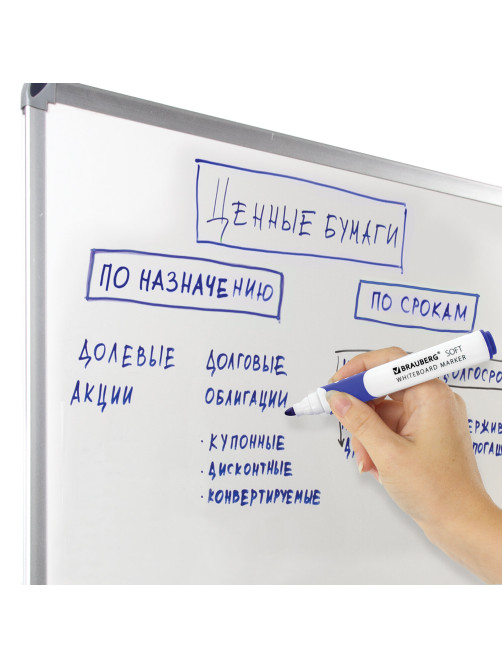 Ценные бумаги
По назначению
По срокам
Долевые
акции
Долговые
облигации
· купонные
· дисконтные
· конвертируемые
BRAUBERG SOFT
WHITEBOARD MARKER